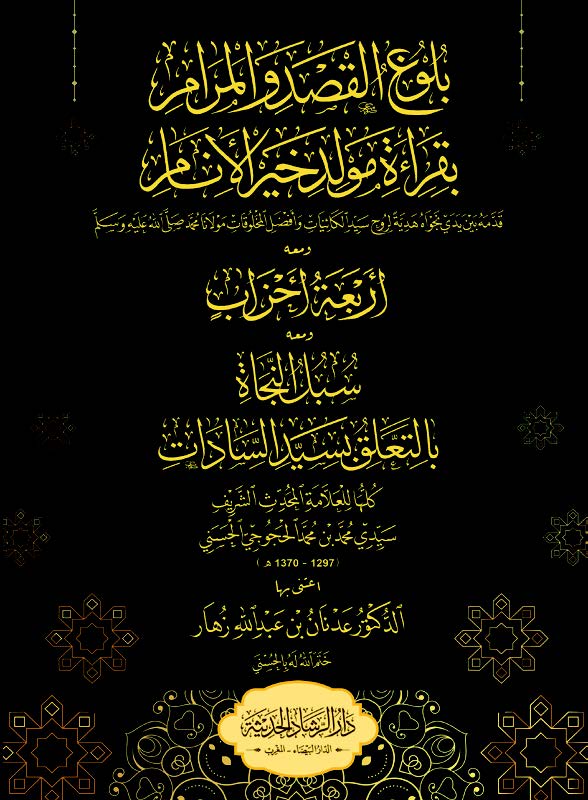 بُلُوغُ القَصْدِ وَالمَرَامِ
بِقِرَاءَةِ مَوْلِدِ خَيْرِ الأَنَامِ
قَدَّمَهُ بَيْنَ يَدَيْ نَجْوَاهُ هَدِيَّةً لِرُوحِ سَيِّدِ الكَائِنَاتِ وَأَفْضَلِ المَخْلُوقَاتِ مَوْلَانَا مُحَمَّد صَلَّى اللهُ عَلَيْهِ وَسَلَّمَ
ومعه
أَرْبَعَةُ أَحْزَابٍ
ومعه
سُبُلُ النَّجَاةِ
بِالتَّعَلُّقِ بِسَيِّدِ السَّادَاتِ
كُلُّهَا لِلْعَلَّامَةِ المُحَدِّثِ الشَّرِيفِ
سَيِّدِي مُحَمَّد بْنِ مُحَمَّد الحَجُوجِيِّ الحَسَنِي
(1297 - 1370 هـ)
اعتنى بها
الدُّكْتُورُ عَدْنَانُ بْنُ عَبْدِ اللهِ زُهَار
خَتَمَ اللهُ لَهُ بِالحُسْنَى
دَارُ الرَّشَادِ الحَدِيثَةِ
الدَّارُ البَيْضَاء - المَغْرِب